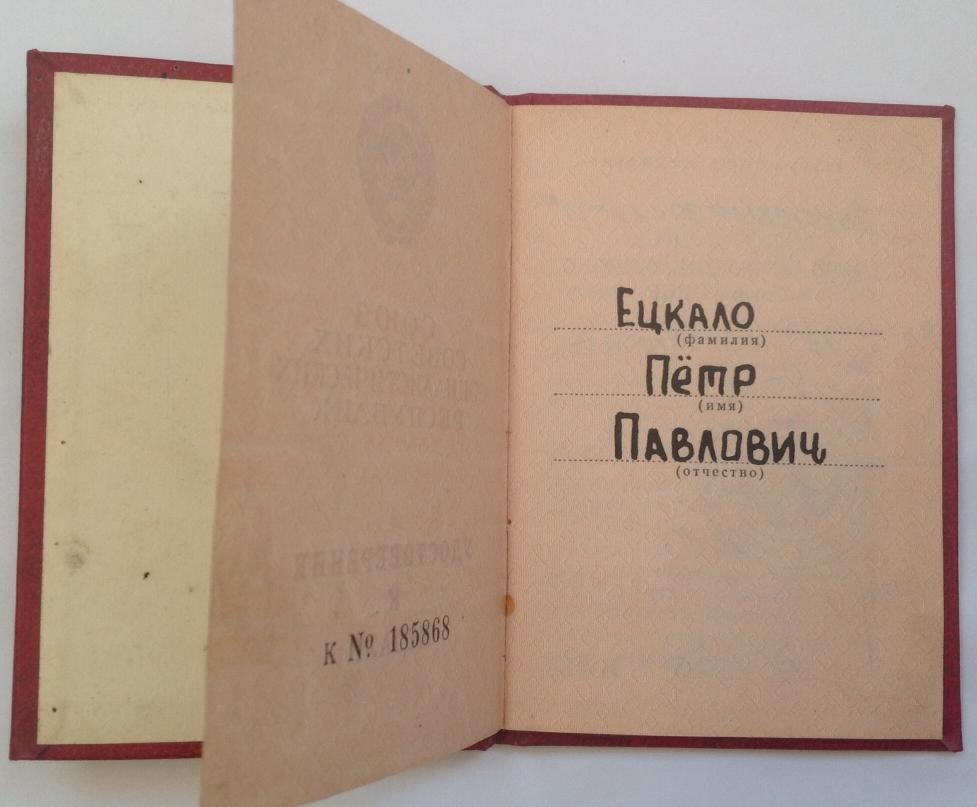 к № 185868
Ецкало
(фамилия)
Пётр
(имя)
Павлович
(отчество)